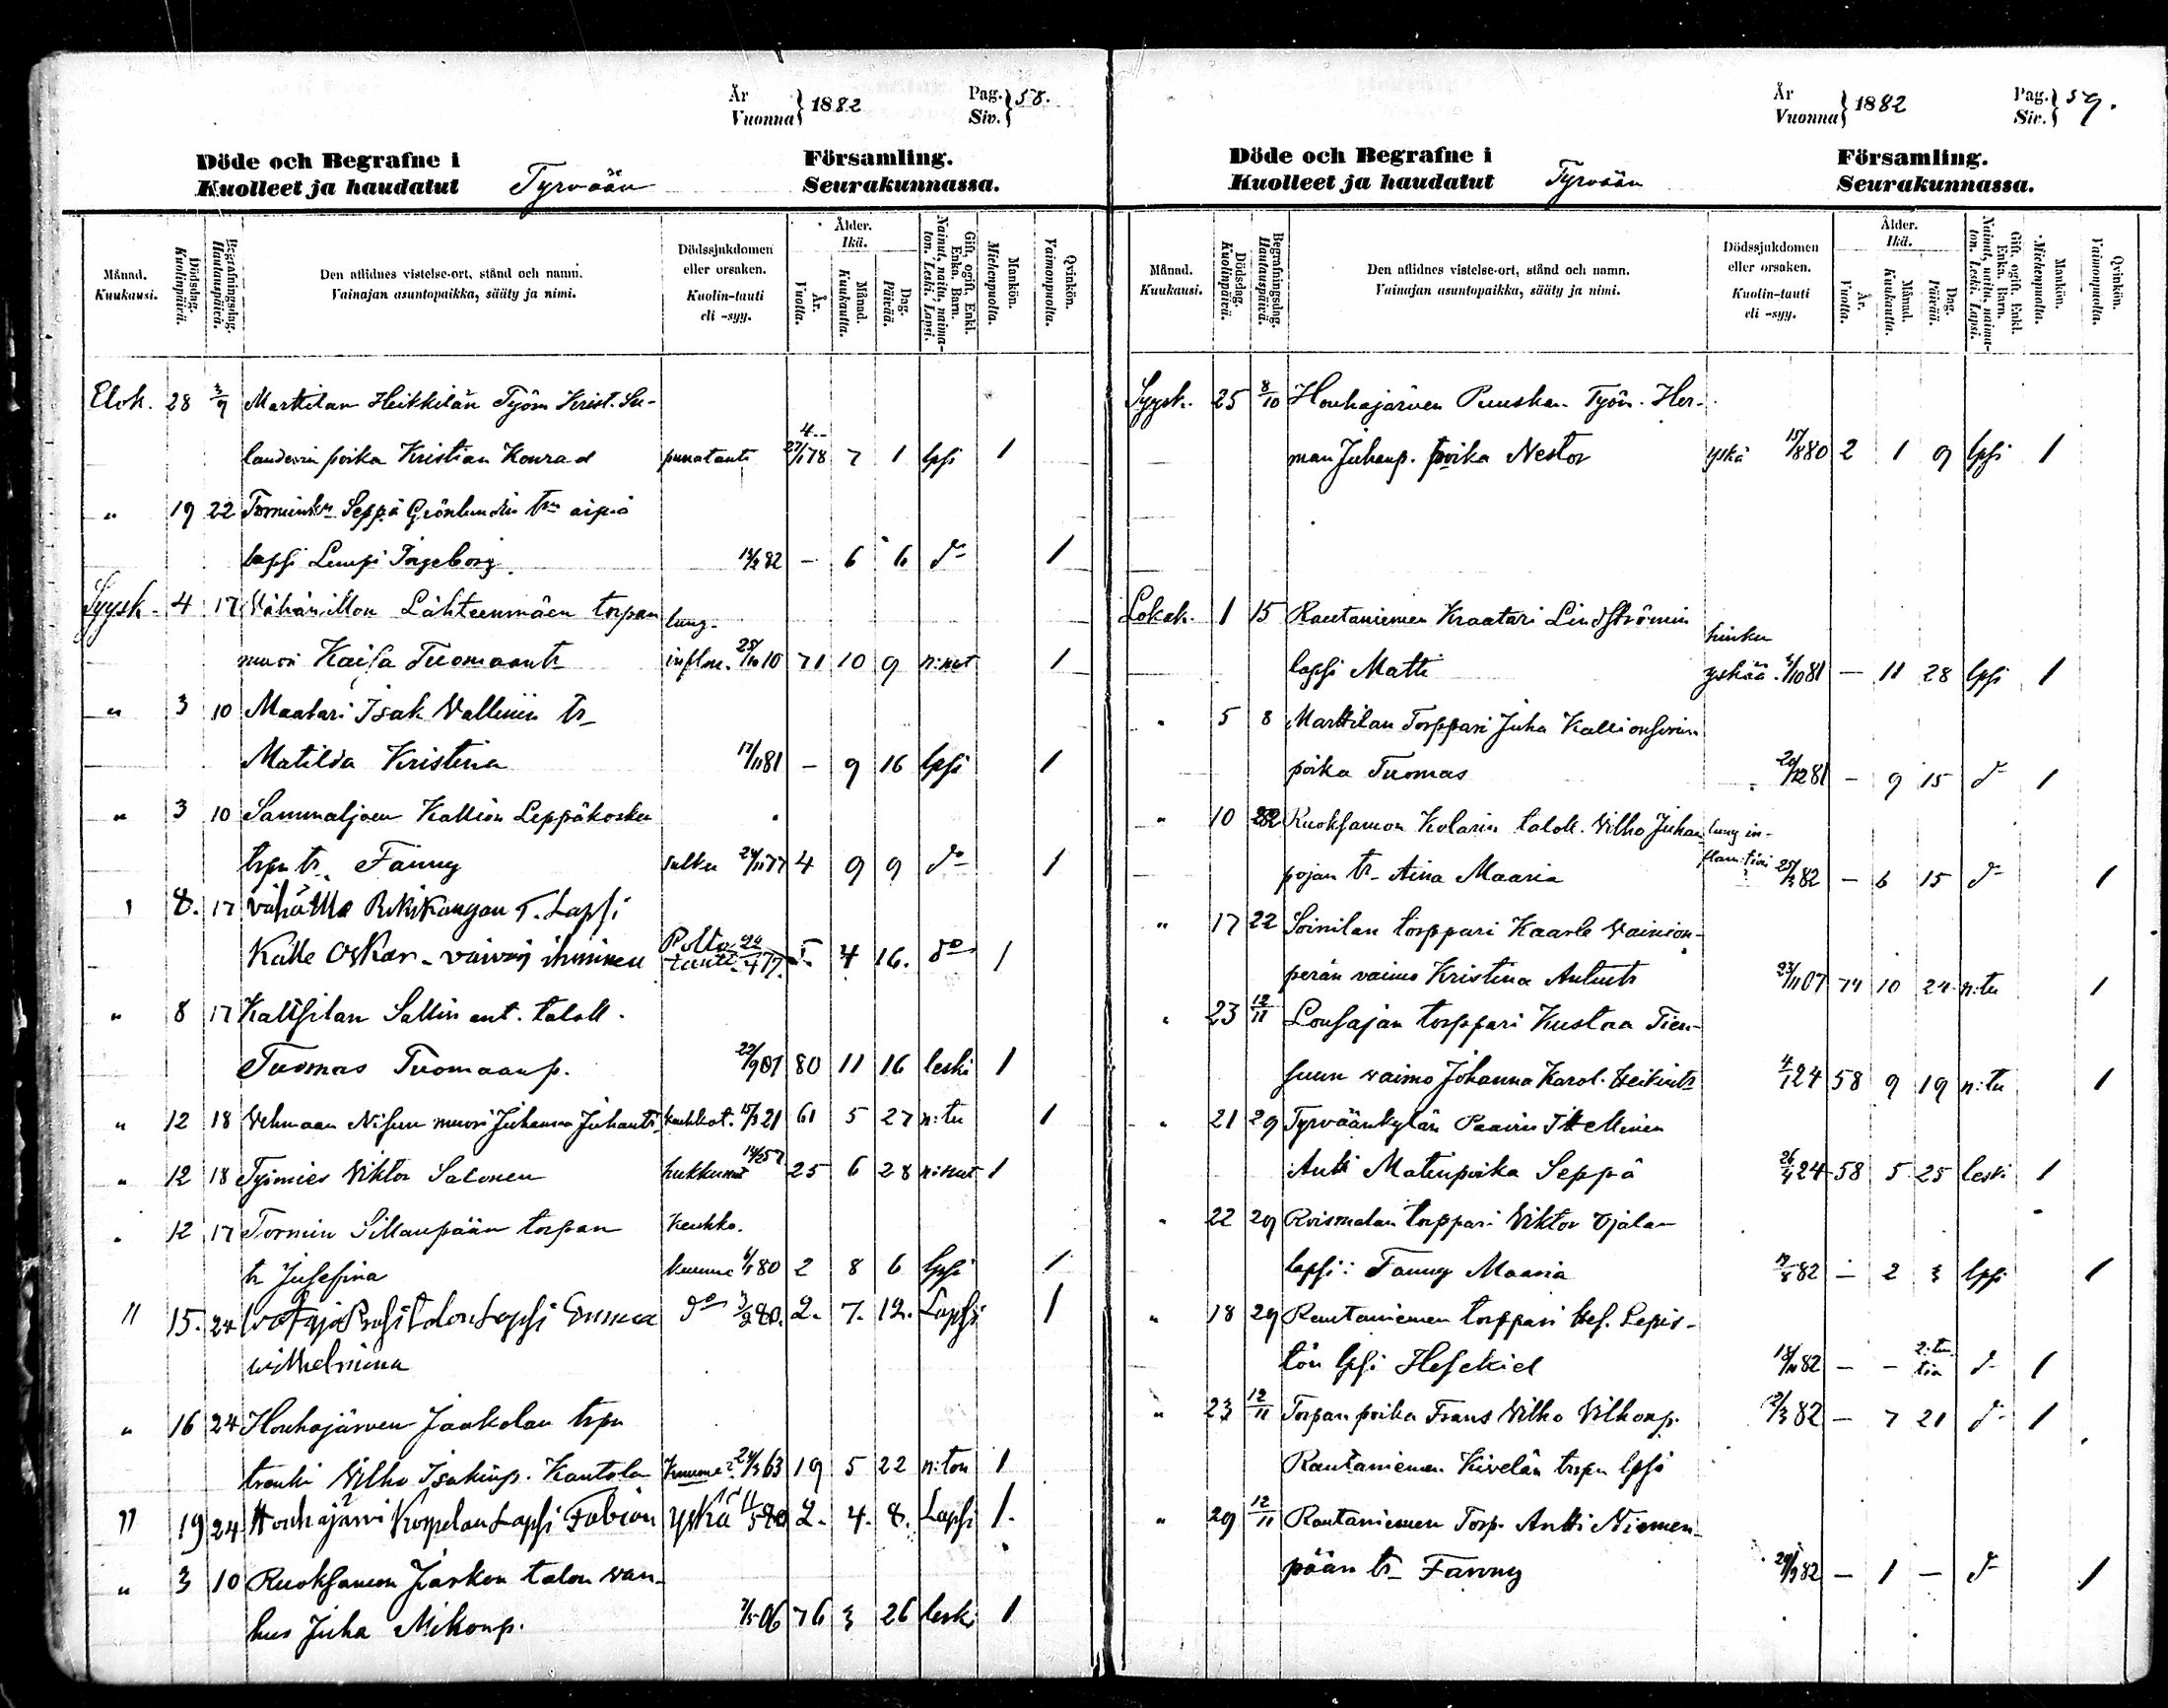 År
Vuonna } 1882
Pag.
Siv. } 58.
Döde och Begrafne i
Kuolleet ja haudatut Tyrvään
Församling.
Seurakunnassa.
Månad.
Kuukausi.
Dödsdag.
Kuolinpäivä.
Begrafningsdag.
Hautauspäivä.
Den aflidnes vistelse-ort, stånd och namn.
Vainajan asuntopaikka, sääty ja nimi.
Dödssjukdomen
eller orsaken.
Kuolin-tauti
eli -syy.
Ålder.
Ikä.
År.
Vuotta.
Månad.
Kuukautta.
Dag.
Päivää.
Gift, ogift, Enkl.
Enka. Barn.
Nainut, naitu, naima-
ton, Leski, Lapsi.
Mankön.
Miehenpuolta.
Qvinkön.
Vaimonpuolta.
Elok. 28 3/9 Marttilan Heikkilän Työm Krist. Su-
landerin poika Kristian Konrad punatauti 27/1 78 4 7 1 lpsi 1
" 19 22 Seppä Grönlundin
lapsi Lempi Ingeborg 13/2 82 – 6 6 do 1
Syysk. 4 17 Lähteenmäen torpan lung.
muori Kaisa Tuomaantr inflam. 25/10 10 71 10 9 n:nut 1
" 3 10 Maalari Isak Vallinin tr
Matilda Kristina 17/11 81 – 9 16 lpsi 1
" 3 10 Sammaljoen Kallion Leppäkosken
trpn tr. Fanny 24/11 77 4 9 9 do 1
" 8. 17 T. Lapsi
Kalle Oskar – ihminen Poltto
tauti 77 5 4 16. do 1
" 8 17 Kaltsilan Sallin ent. taloll.
Tuomas Tuomaanp. 22/9 01 80 11 16 leski 1
" 12 18 Vehmaan muori Juhanna Juhantr 15/3 21 61 5 27 n:tu 1
" 12 18 Työmies Viktor Salonen hukkunut 14/2 57 25 6 28 n:nut 1
" 12 17 Tormin Sillanpään torpan keuhko.
tr Josefina kuume 6/1 80 2 8 6 lpsi 1
" 15. 24 Lapsi Emma do 3/2 80. 2. 7. 12. Lapsi 1
Wilhelmina
" 16 24 Houhajärven Jaakolan trpn
Vilho Isakinp. Kantola Kuume 24/3 63 19 5 22 n:ton 1
" 19 24 Houhajärvi Korpelan Lapsi Fabian yskä 11/5 80 2. 4. 8. Lapsi 1.
" 3 10 Ruoksamon Jaskon talon van-
hus Juha Mikonp. 7/5 06 76 3 26 leski 1
År
Vuonna } 1882
Pag.
Siv. } 59.
Döde och Begrafne i
Kuolleet ja haudatut Tyrvään
Församling.
Seurakunnassa.
Månad.
Kuukausi.
Dödsdag.
Kuolinpäivä.
Begrafningsdag.
Hautauspäivä.
Den aflidnes vistelse-ort, stånd och namn.
Vainajan asuntopaikka, sääty ja nimi.
Dödssjukdomen
eller orsaken.
Kuolin-tauti
eli -syy.
Ålder.
Ikä.
År.
Vuotta.
Månad.
Kuukautta.
Dag.
Päivää.
Gift, ogift, Enkl.
Enka. Barn.
Nainut, naitu, naima-
ton, Leski, Lapsi.
Mankön.
Miehenpuolta.
Qvinkön.
Vaimonpuolta.
Syysk. 25 8/10 Houhajärven Puuskan Työm. Her-
man Juhanp. poika Nestor yskä 15/8 80 2 1 9 lpsi 1
Lokak. 1 15 Rautaniemen Kraatari Lindströmin hinku
lapsi Matti yskää 3/10 81 – 11 28 lpsi 1
" 5 8 Marttilan Torppari Juha
poika Tuomas 20/12 81 – 9 15 do 1
" 10 22 Ruoksamon Kolarin taloll. Vilho Juhan lung in-
pojan tr Aina Maaria 25/3 82 – 6 15 do 1
" 17 22 Soinilan torppari Kaarle Vainion-
perän vaimo Kristina Antintr 23/11 07 74 10 24 n:tu 1
" 23 12/11 Lousajan torppari Kustaa Tien-
suun vaimo Johanna Karol. Heikintr 4/1 24 58 9 19 n:tu 1
" 21 29 Tyrväänkylän Paavin Itsellinen
Anti Matinpoika Seppä 26/4 24 58 5 25 leski 1
" 22 29 Roismalan torppari Viktor Ojalan
lapsi: Fanny Maaria 19/8 82 – 2 3 lpsi 1
" 18 29 Rautaniemen torppari Hes. Lepis-
tön lpsi Hesekiel 18/10 82 – – 2:tun
tia do 1
" 23 12/11 Torpan poika Frans Vilho Vilhonp. 2/3 82 – 7 21 do 1
Rautaniemen Kivelän trpn lpsi
" 29 12/11 Rautaniemen Torp. Antti Niemen-
pään tr Fanny 29/9 82 – 1 – do 1